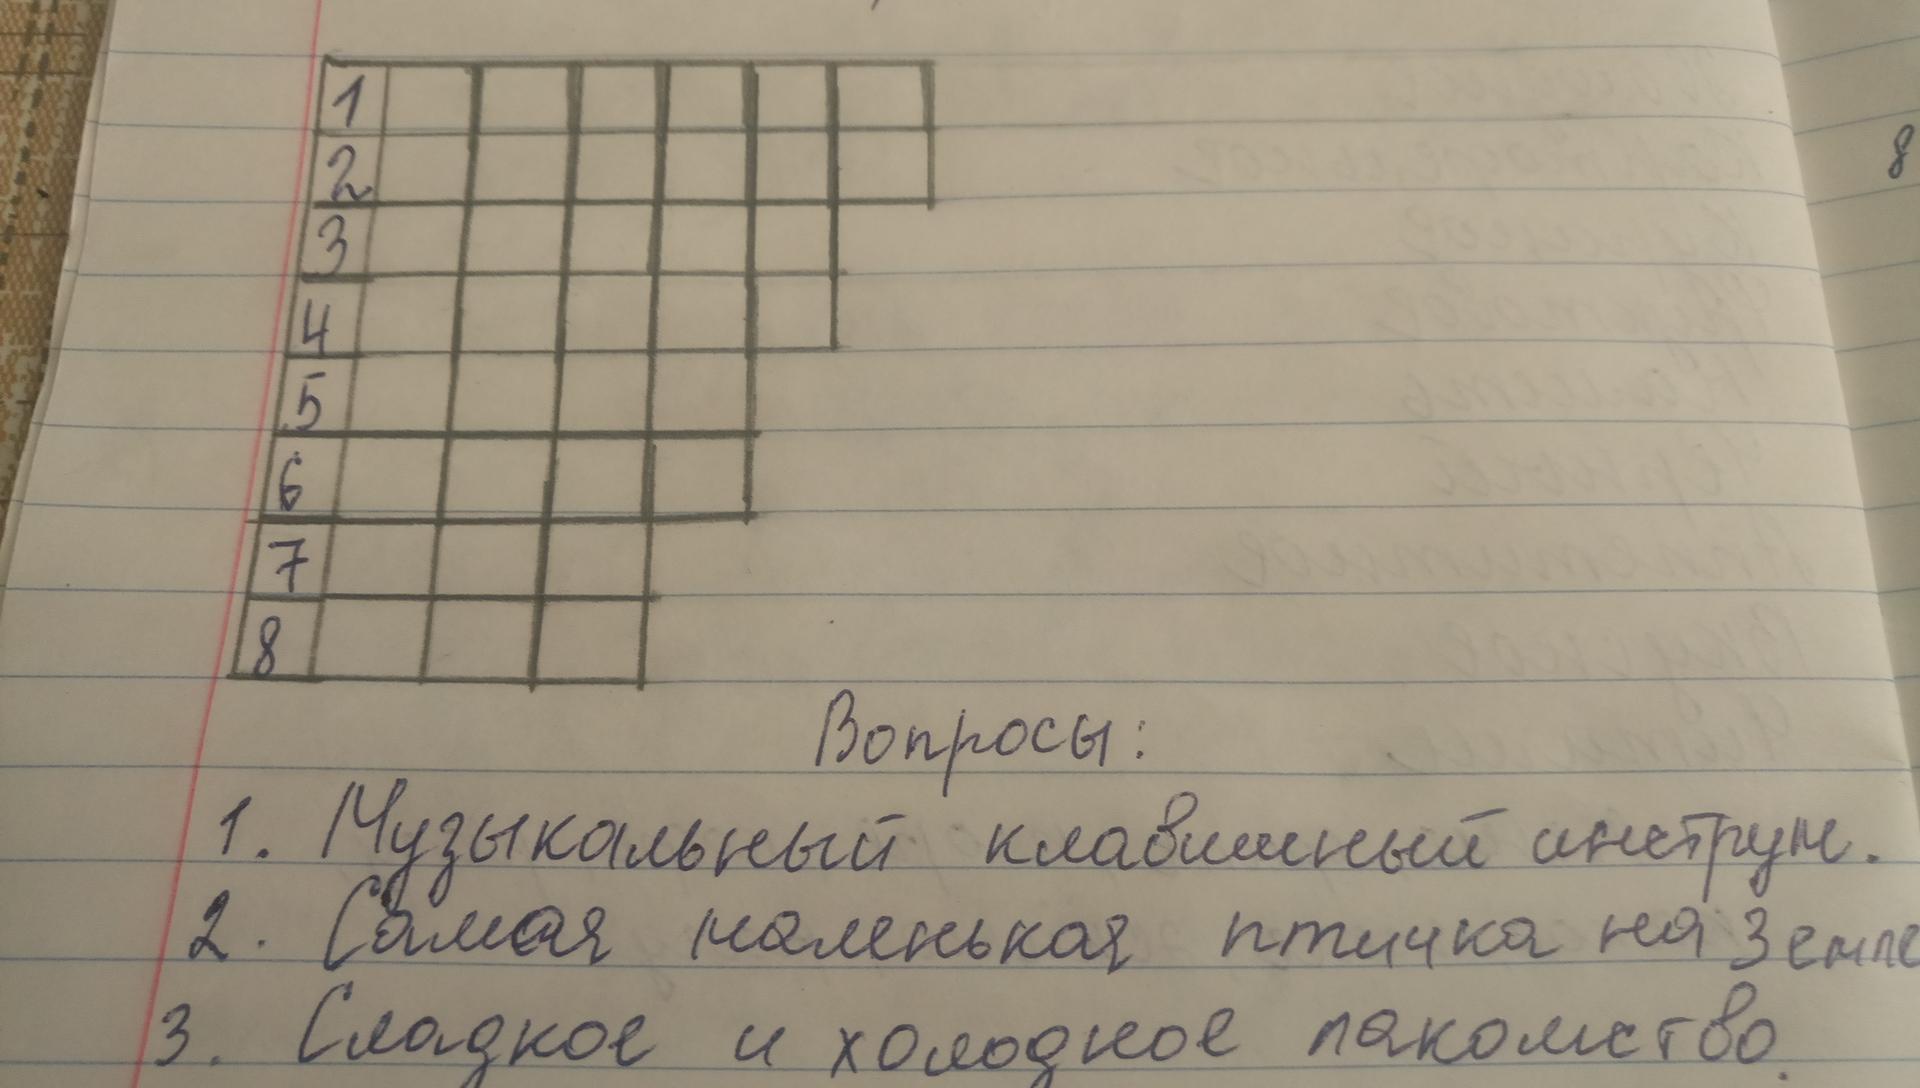 1
2
3
4
5
6
7
8
8
Вопросы:
1. Музыкальный клавишный инструм.
2. Самая маленькая птичка на Земле
3. Сладкое и холодное лакомство.